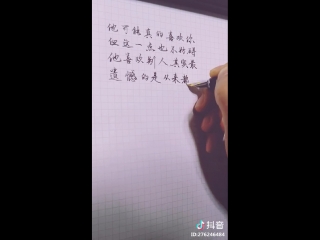 他可能真的喜欢你
但这一点也不妨碍
他喜欢别人其实最
遗憾的是从来都
抖音
ID:276246484